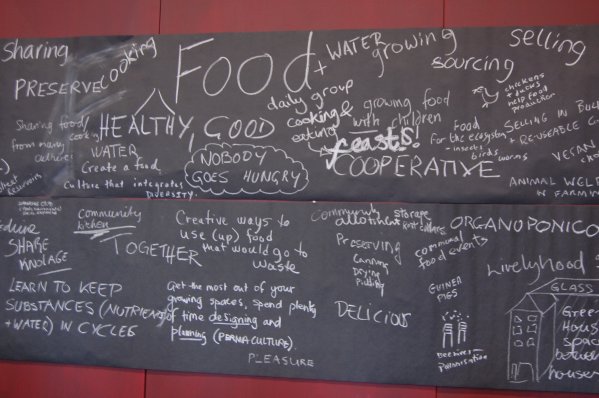 Sharing
PRESERVE
cooking
Food
+ WATER
growing
sourcing
Selling
chickens
+ ducks
help food
production
daily group
cooking &
eating
growing food
with children
feasts!
COOPERATIVE
Food
for the ecosystem
insects
birds
worms
SELLING IN BULK
+ RE-USABLE
VEGAN
ANIMAL WELF
IN FARMIN
Sharing food/
cooking
from many
cultures
HEALTHY, GOOD
WATER
Create a food
Culture that integrates
DIVERSITY.
NOBODY
GOES HUNGRY
SHARE
KNOLAGE
community
kitchen
TOGETHER
Creative ways to
use (up) food
that would go to
waste
Community
allotment
storage
Preserving
Canning
Drying
Pickling
communal
food events
ORGANOPONICO
Livelyhood
GUINEA
PIGS
GLASS
Green
House
space
between
houses
LEARN TO KEEP
SUBSTANCES (NUTRIENTS
+ WATER) IN CYCLES
Get the most out of your
growing spaces, spend plenty
of time designing and
planning (PERMACULTURE).
PLEASURE
DELICIOUS
Beehives
Pollinisation